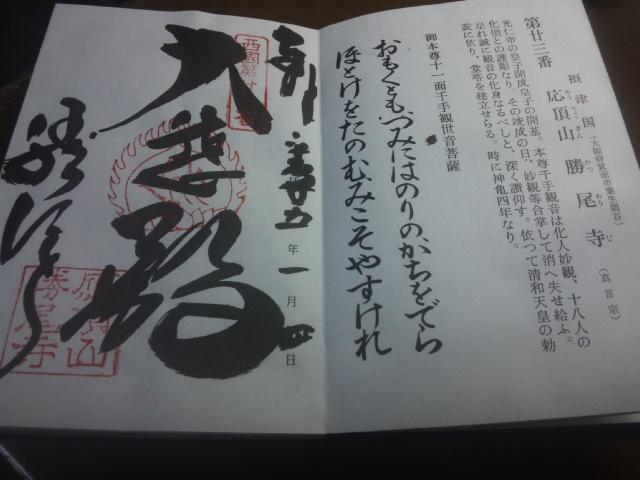 第廿三番
摂津国(大阪府箕面市粟生間谷)
応頂山 勝尾寺(真言宗)
おう ちょう ざん かつ お じ
光仁帝の皇子開成皇子の開基。本尊千手観音は化人妙観、十八人の
化僧との謹彫なり。その竣成の日、妙観等合掌して消へ失せ給ふ。
是れ誠に観音の化身なるべしと、深く讃仰す。依つて清和天皇の勅
詔に依り、堂塔を建立せらる。時に神亀四年なり。
御本尊十一面千手観世音菩薩
おもくともつみにはのりのかちをでら
ほとけをたのむみこそやすけれ
奉拝 年一月四日
西國第廿三番
大悲殿
勝尾寺
應頂山
勝尾寺